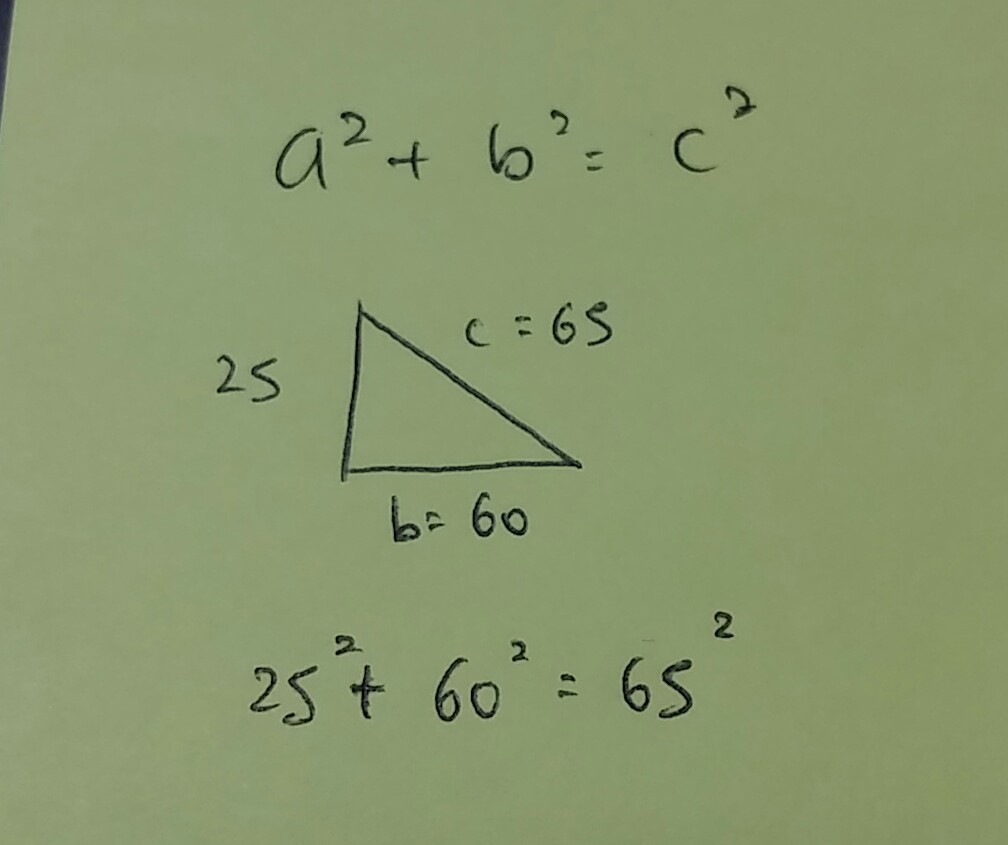 a² + b² = c²
c = 65
25
b = 60
25² + 60² = 65²